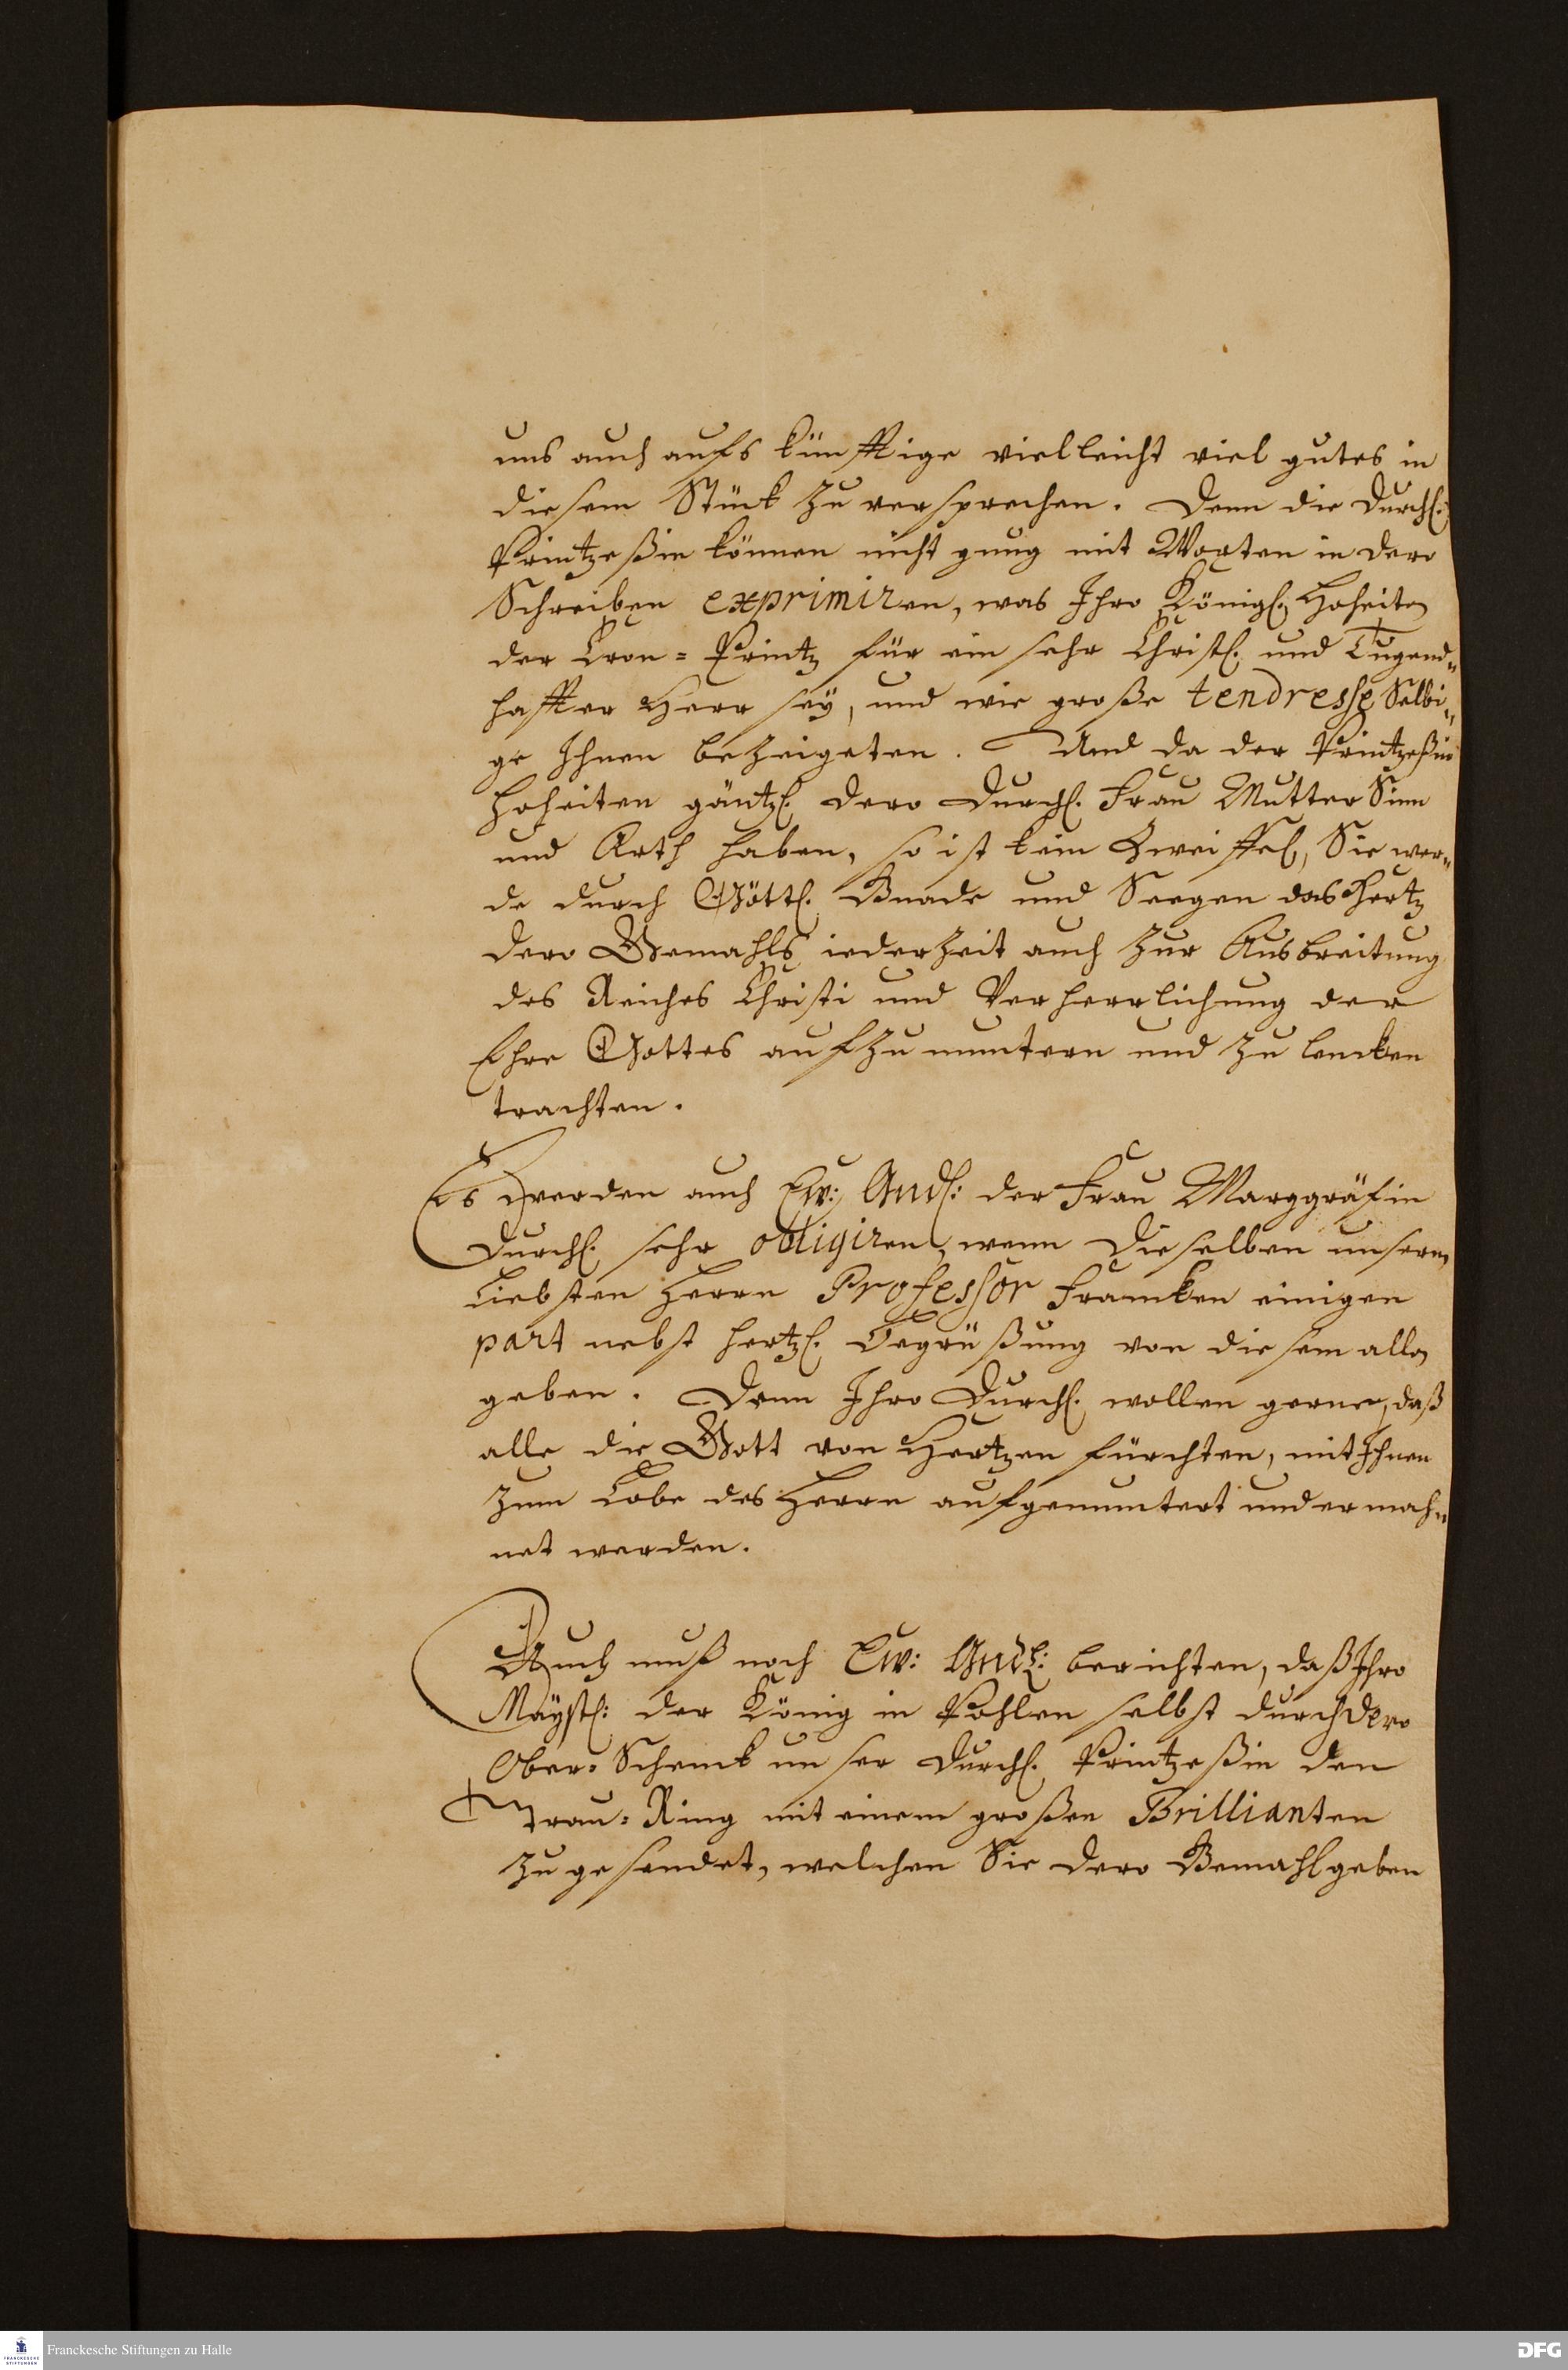 uns auch aufs künfftige vielleicht viel gutes in
diesem Stück zu versprechen. Denn die Durchl.
Printzeßin können nicht gnug mit Worten in dero
Schreiben exprimiren, was Ihro Königl. Hoheiten
der Cron=Printz für ein sehr Christl. und Tugend=
haffter Herr sey, und wie große tendresse Selbi=
ge Ihnen bezeigeten. Und da der Printzeßin
Hoheiten gäntzl. dero Durchl. Frau Mutter Sinn
und Arth haben, so ist kein Zweiffel, Sie wer=
de durch Göttl. Gnade und Seegen das Hertz
dero Gemahls iederzeit auch zur Ausbreitung
des Reiches Christi und Verherrlichung der
Ehre Gottes aufzumuntern und zu lencken
trachten.
Es werden auch Ew: Gndl: der Frau Marggräfin
Durchl. sehr obligiren, wenn Dieselben unserm
Liebsten Herrn Professor Francken einigen
part nebst hertzl. Begrüßung von diesem allen
geben. Denn Ihro Durchl. wollen gerne, daß
alle die Gott von Hertzen fürchten, mit Ihnen
zum Lobe des Herrn aufgemuntert und ermah=
net werden.
Auch muß noch Ew: Gndl: berichten, daß Ihro
Mayst: der König in Pohlen selbst durch dero
Ober=Schenck unser Durchl. Printzeßin den
Trau=Ring mit einem großen Brillianten
zugesendet, welchen Sie dero Gemahl geben
Franckesche Stiftungen zu Halle
FRANCKESCHE STIFTUNGEN
DFG